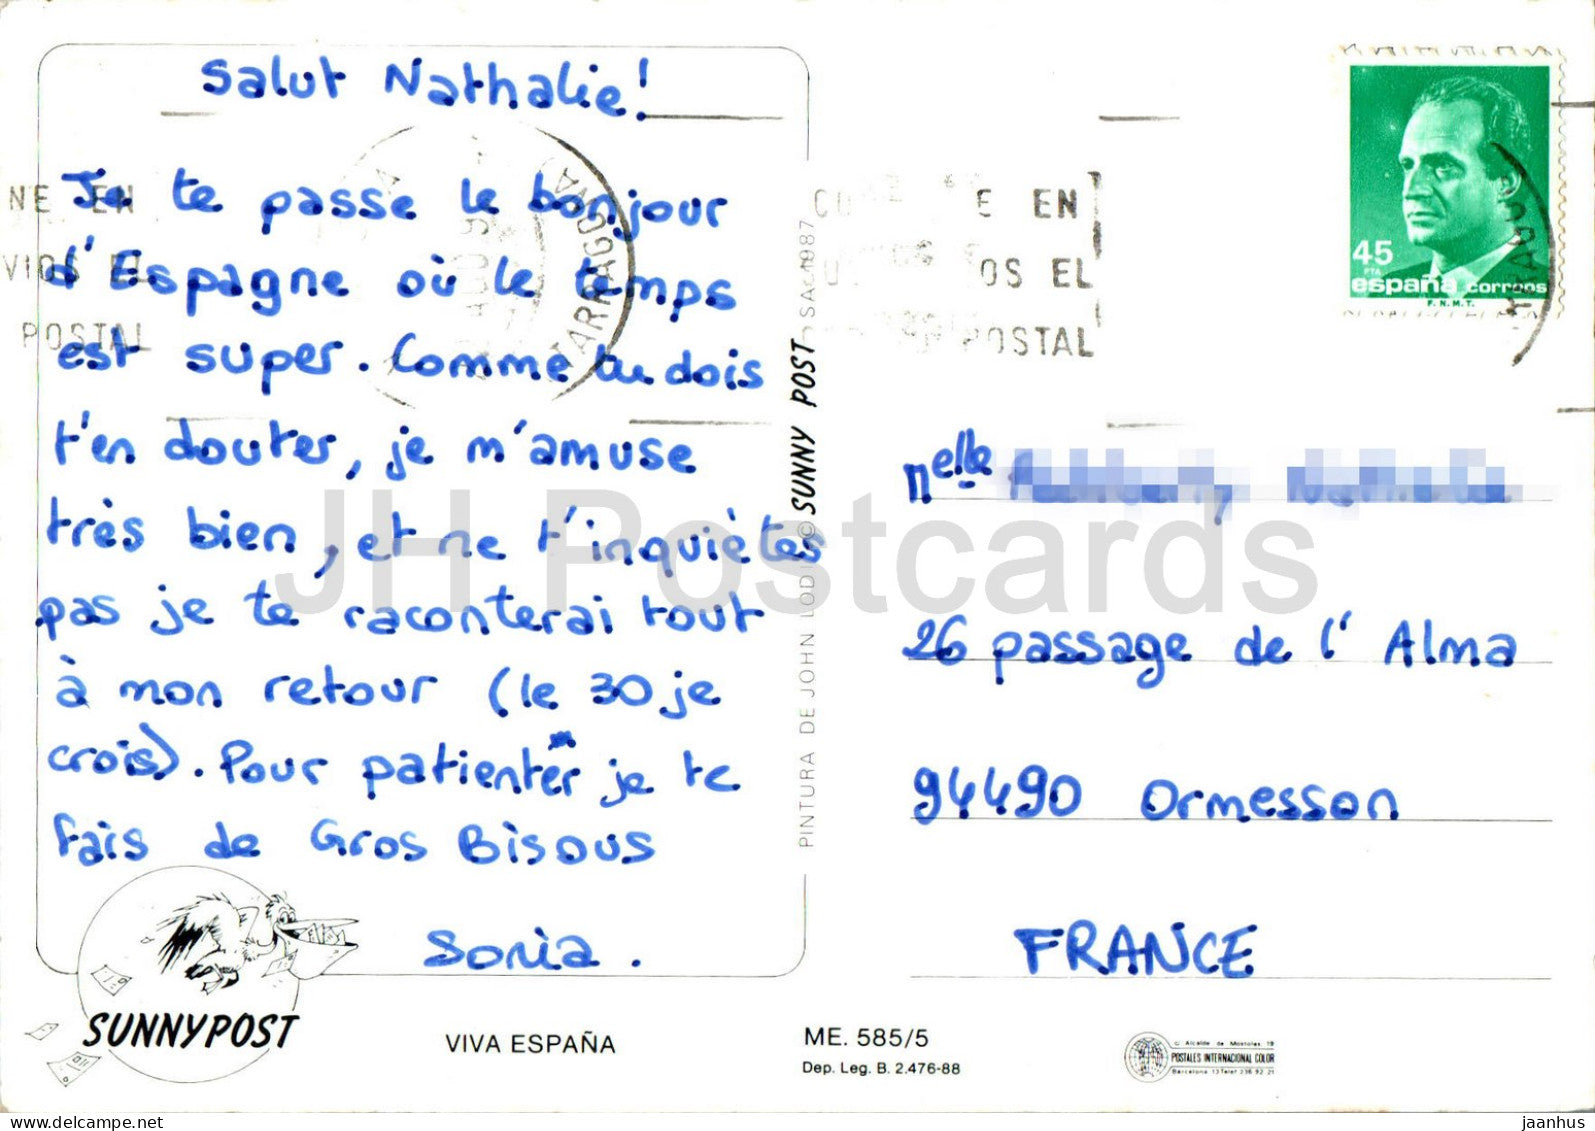 Salut Nathalie!
Je te passe le bonjour
d'Espagne où le temps
est super. Comme tu dois
t'en douter, je m'amuse
très bien, et ne t'inquiètes
pas je te raconterai tout
à mon retour (le 30 je
crois). Pour patienter je te
fais de Gros Bisous
Sonia.
SUNNYPOST
VIVA ESPAÑA
NE EN
VIOS EL
POSTAL
TARRAGONA
PINTURA DE JOHN LODI © SUNNY POST SA 1987
E EN
OS EL
POSTAL
45
PTA
españa correos
F.N.M.T.
Melle
26 passage de l'Alma
94490 Ormesson
FRANCE
ME. 585/5
Dep. Leg. B. 2.476-88
C/ Alcalde de Mostoles, 19
POSTALES INTERNACIONAL COLOR
Barcelona 13 Telef 236 92 21
JH Postcards
delcampe.net
jaanhus